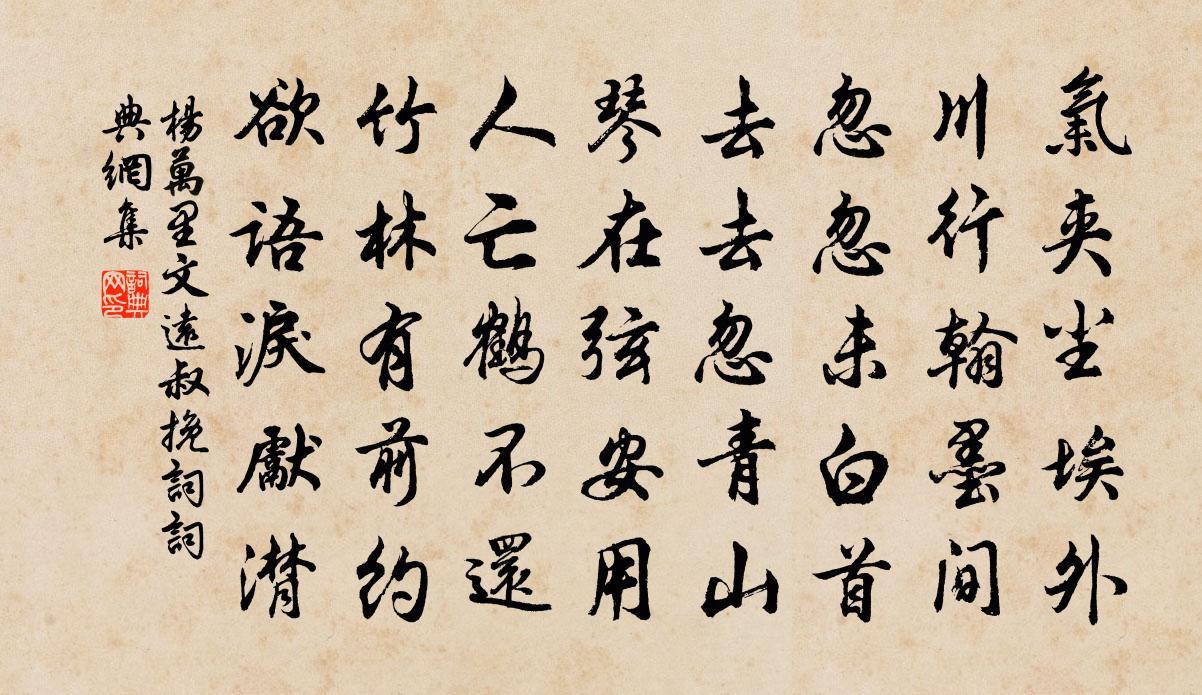 氣爽尘埃外
川行翰墨間
忽忽未白首
去去忽青山
琴在弦安用
人亡鶴不還
竹林有前約
欲語淚獻潸
楊萬里文遠叔挽詞詞
典網集
詞典
网印